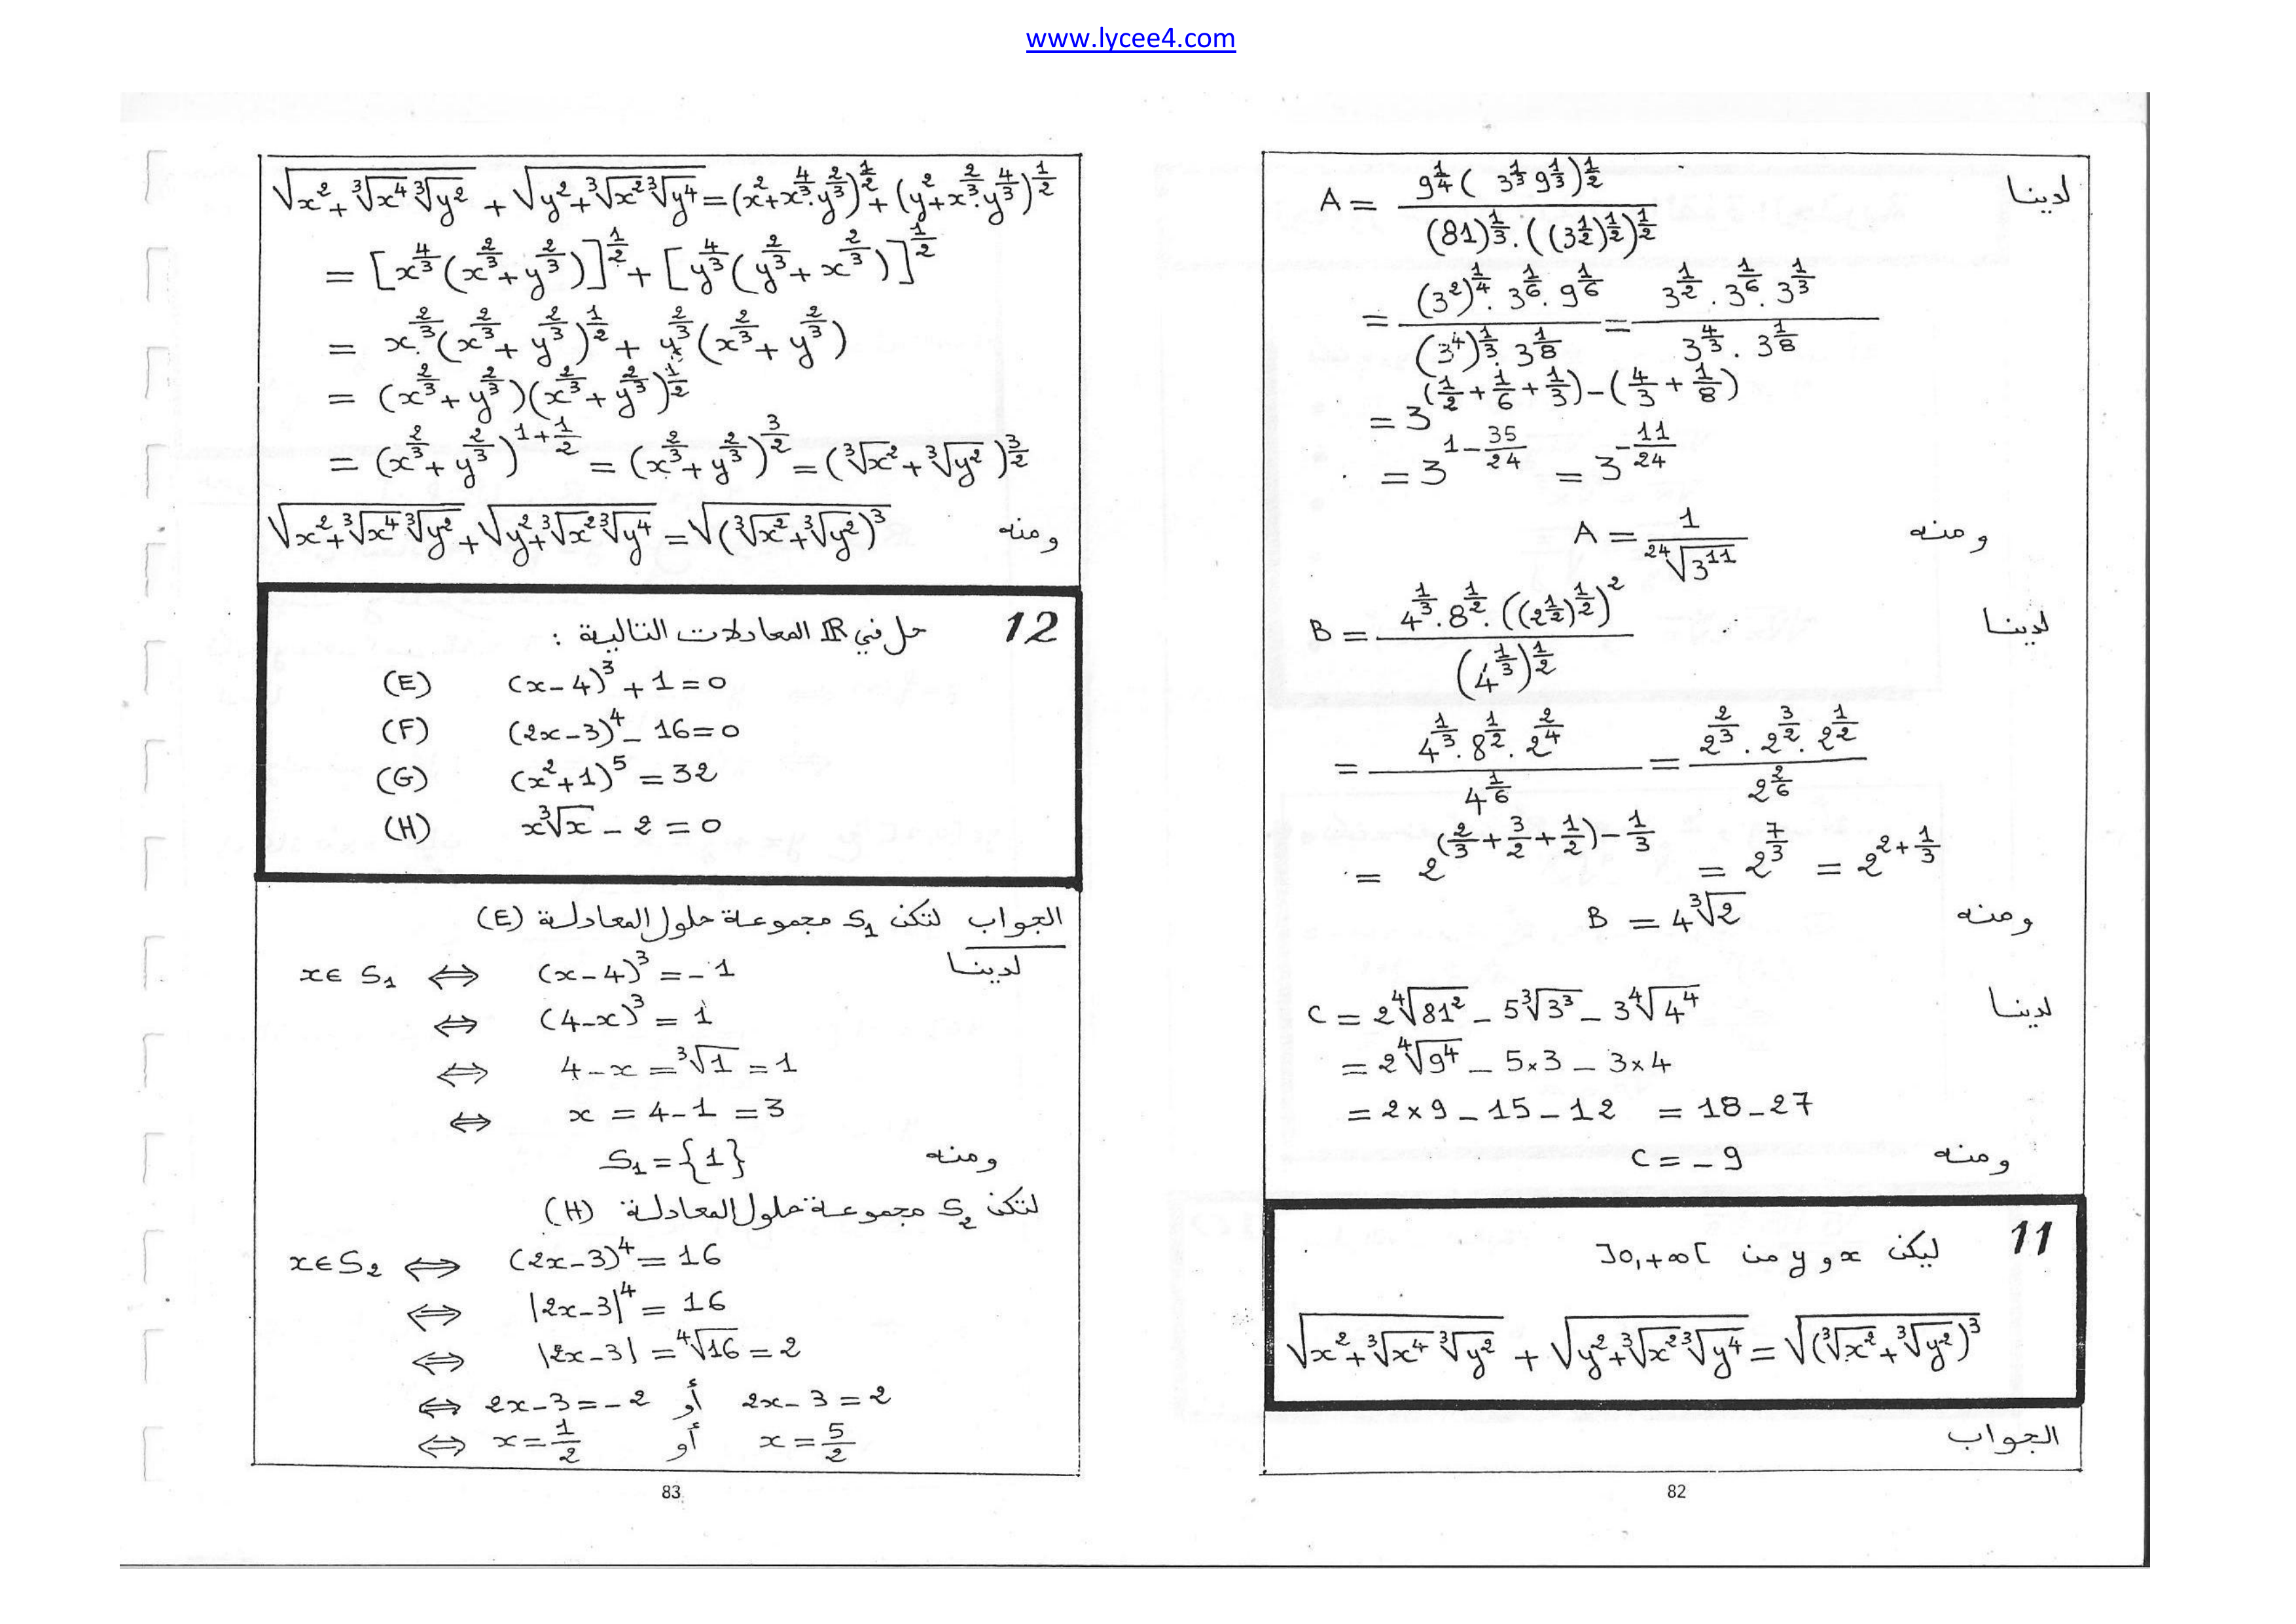 www.lycee4.com
لدينا A = \frac{9^{\frac{1}{4}}( 3^{\frac{1}{3}} 9^{\frac{1}{3}})^{\frac{1}{2}}}{(81)^{\frac{1}{3}}.((3^{\frac{1}{2}})^{\frac{1}{2}})^{\frac{1}{2}}}
= \frac{(3^2)^{\frac{1}{4}}. 3^{\frac{1}{6}}. 9^{\frac{1}{6}}}{(3^4)^{\frac{1}{3}}. 3^{\frac{1}{8}}} = \frac{3^{\frac{1}{2}}. 3^{\frac{1}{6}}. 3^{\frac{1}{3}}}{3^{\frac{4}{3}}. 3^{\frac{1}{8}}}
= 3^{(\frac{1}{2}+\frac{1}{6}+\frac{1}{3})-(\frac{4}{3}+\frac{1}{8})}
= 3^{1-\frac{35}{24}} = 3^{-\frac{11}{24}}
ومنه A = \frac{1}{\sqrt[24]{3^{11}}}
لدينا B = \frac{4^{\frac{1}{3}}. 8^{\frac{1}{2}}. ((2^{\frac{1}{2}})^{\frac{1}{2}})^2}{(4^{\frac{1}{3}})^{\frac{1}{2}}}
= \frac{4^{\frac{1}{3}}. 8^{\frac{1}{2}}. 2^{\frac{2}{4}}}{4^{\frac{1}{6}}} = \frac{2^{\frac{2}{3}}. 2^{\frac{3}{2}}. 2^{\frac{1}{2}}}{2^{\frac{2}{6}}}
= 2^{(\frac{2}{3}+\frac{3}{2}+\frac{1}{2})-\frac{1}{3}} = 2^{\frac{7}{3}} = 2^{2+\frac{1}{3}}
ومنه B = 4\sqrt[3]{2}
لدينا C = 2\sqrt[4]{81^2} - 5\sqrt[3]{3^3} - 3\sqrt[4]{4^4}
= 2\sqrt[4]{9^4} - 5×3 - 3×4
= 2×9 - 15 - 12 = 18 - 27
ومنه C = - 9
11 ليكن x و y من ]0,+∞[
\sqrt{x^2+\sqrt[3]{x^4}\sqrt[3]{y^2}} + \sqrt{y^2+\sqrt[3]{x^2}\sqrt[3]{y^4}} = \sqrt{(\sqrt[3]{x^2}+\sqrt[3]{y^2})^3}
الجواب
82
\sqrt{x^2+\sqrt[3]{x^4}\sqrt[3]{y^2}} + \sqrt{y^2+\sqrt[3]{x^2}\sqrt[3]{y^4}} = (x^2+x^{\frac{4}{3}}.y^{\frac{2}{3}})^{\frac{1}{2}} + (y^2+x^{\frac{2}{3}}.y^{\frac{4}{3}})^{\frac{1}{2}}
= [x^{\frac{4}{3}}(x^{\frac{2}{3}}+y^{\frac{2}{3}})]^{\frac{1}{2}} + [y^{\frac{4}{3}}(y^{\frac{2}{3}}+x^{\frac{2}{3}})]^{\frac{1}{2}}
= x^{\frac{2}{3}}.(x^{\frac{2}{3}}+y^{\frac{2}{3}})^{\frac{1}{2}} + y^{\frac{2}{3}}(x^{\frac{2}{3}}+y^{\frac{2}{3}})
= (x^{\frac{2}{3}}+y^{\frac{2}{3}})(x^{\frac{2}{3}}+y^{\frac{2}{3}})^{\frac{1}{2}}
= (x^{\frac{2}{3}}+y^{\frac{2}{3}})^{1+\frac{1}{2}} = (x^{\frac{2}{3}}+y^{\frac{2}{3}})^{\frac{3}{2}} = (\sqrt[3]{x^2}+\sqrt[3]{y^2})^{\frac{3}{2}}
ومنه \sqrt{x^2+\sqrt[3]{x^4}\sqrt[3]{y^2}} + \sqrt{y^2+\sqrt[3]{x^2}\sqrt[3]{y^4}} = \sqrt{(\sqrt[3]{x^2}+\sqrt[3]{y^2})^3}
12 حل في ℝ المعادلات التالية :
(E) (x-4)^3 + 1 = 0
(F) (2x-3)^4 - 16 = 0
(G) (x^2+1)^5 = 32
(H) x\sqrt[3]{x} - 2 = 0
الجواب لتكن S_1 مجموعة حلول المعادلة (E)
لدينا x∈ S_1 ⇔ (x-4)^3 = -1
⇔ (4-x)^3 = 1
⇔ 4-x = \sqrt[3]{1} = 1
⇔ x = 4-1 = 3
ومنه S_1 = {1}
لتكن S_2 مجموعة حلول المعادلة (H)
x∈S_2 ⇔ (2x-3)^4 = 16
⇔ |2x-3|^4 = 16
⇔ |2x-3| = \sqrt[4]{16} = 2
⇔ 2x-3 = -2 أو 2x-3 = 2
⇔ x = \frac{1}{2} أو x = \frac{5}{2}
83